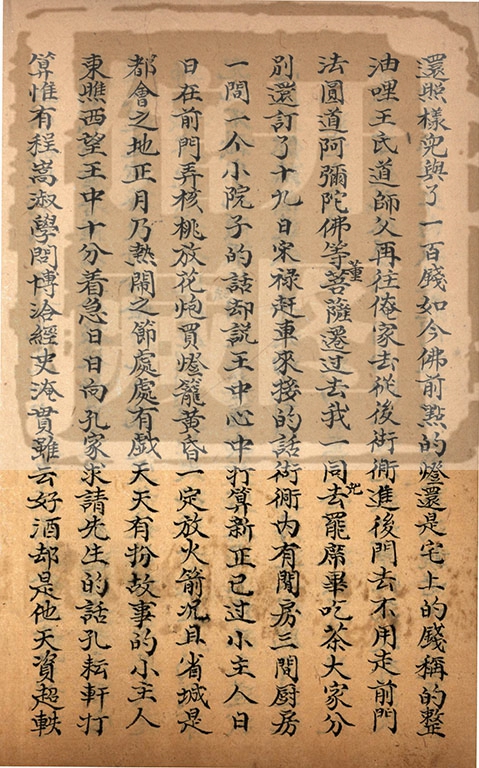 還照樣兑與了一百錢如今佛前㸃的燈還是宅上的錢稱的整
油哩王氏道師父再往俺家去從後衚衕進後門去不用走前門
法圓道阿彌陀佛等菩薩董遷过去我一同去罷先席畢吃茶大家分
别還訂了十九日宋禄赶車來接的話衚衕内有閒房三間厨房
一間一个小院子的話却說王中心中打算新正已过小主人日
日在前門弄核桃放花炮買燈籠黄昏一定放火箭况且省城是
都會之地正月乃熱鬧之節處處有戯天天有扮故事的小主人
東瞧西望王中十分着急日日向孔家求請先生的話孔耘軒打
算惟有程嵩淑學問博洽經史淹貫雖云好酒却是他天資超軼